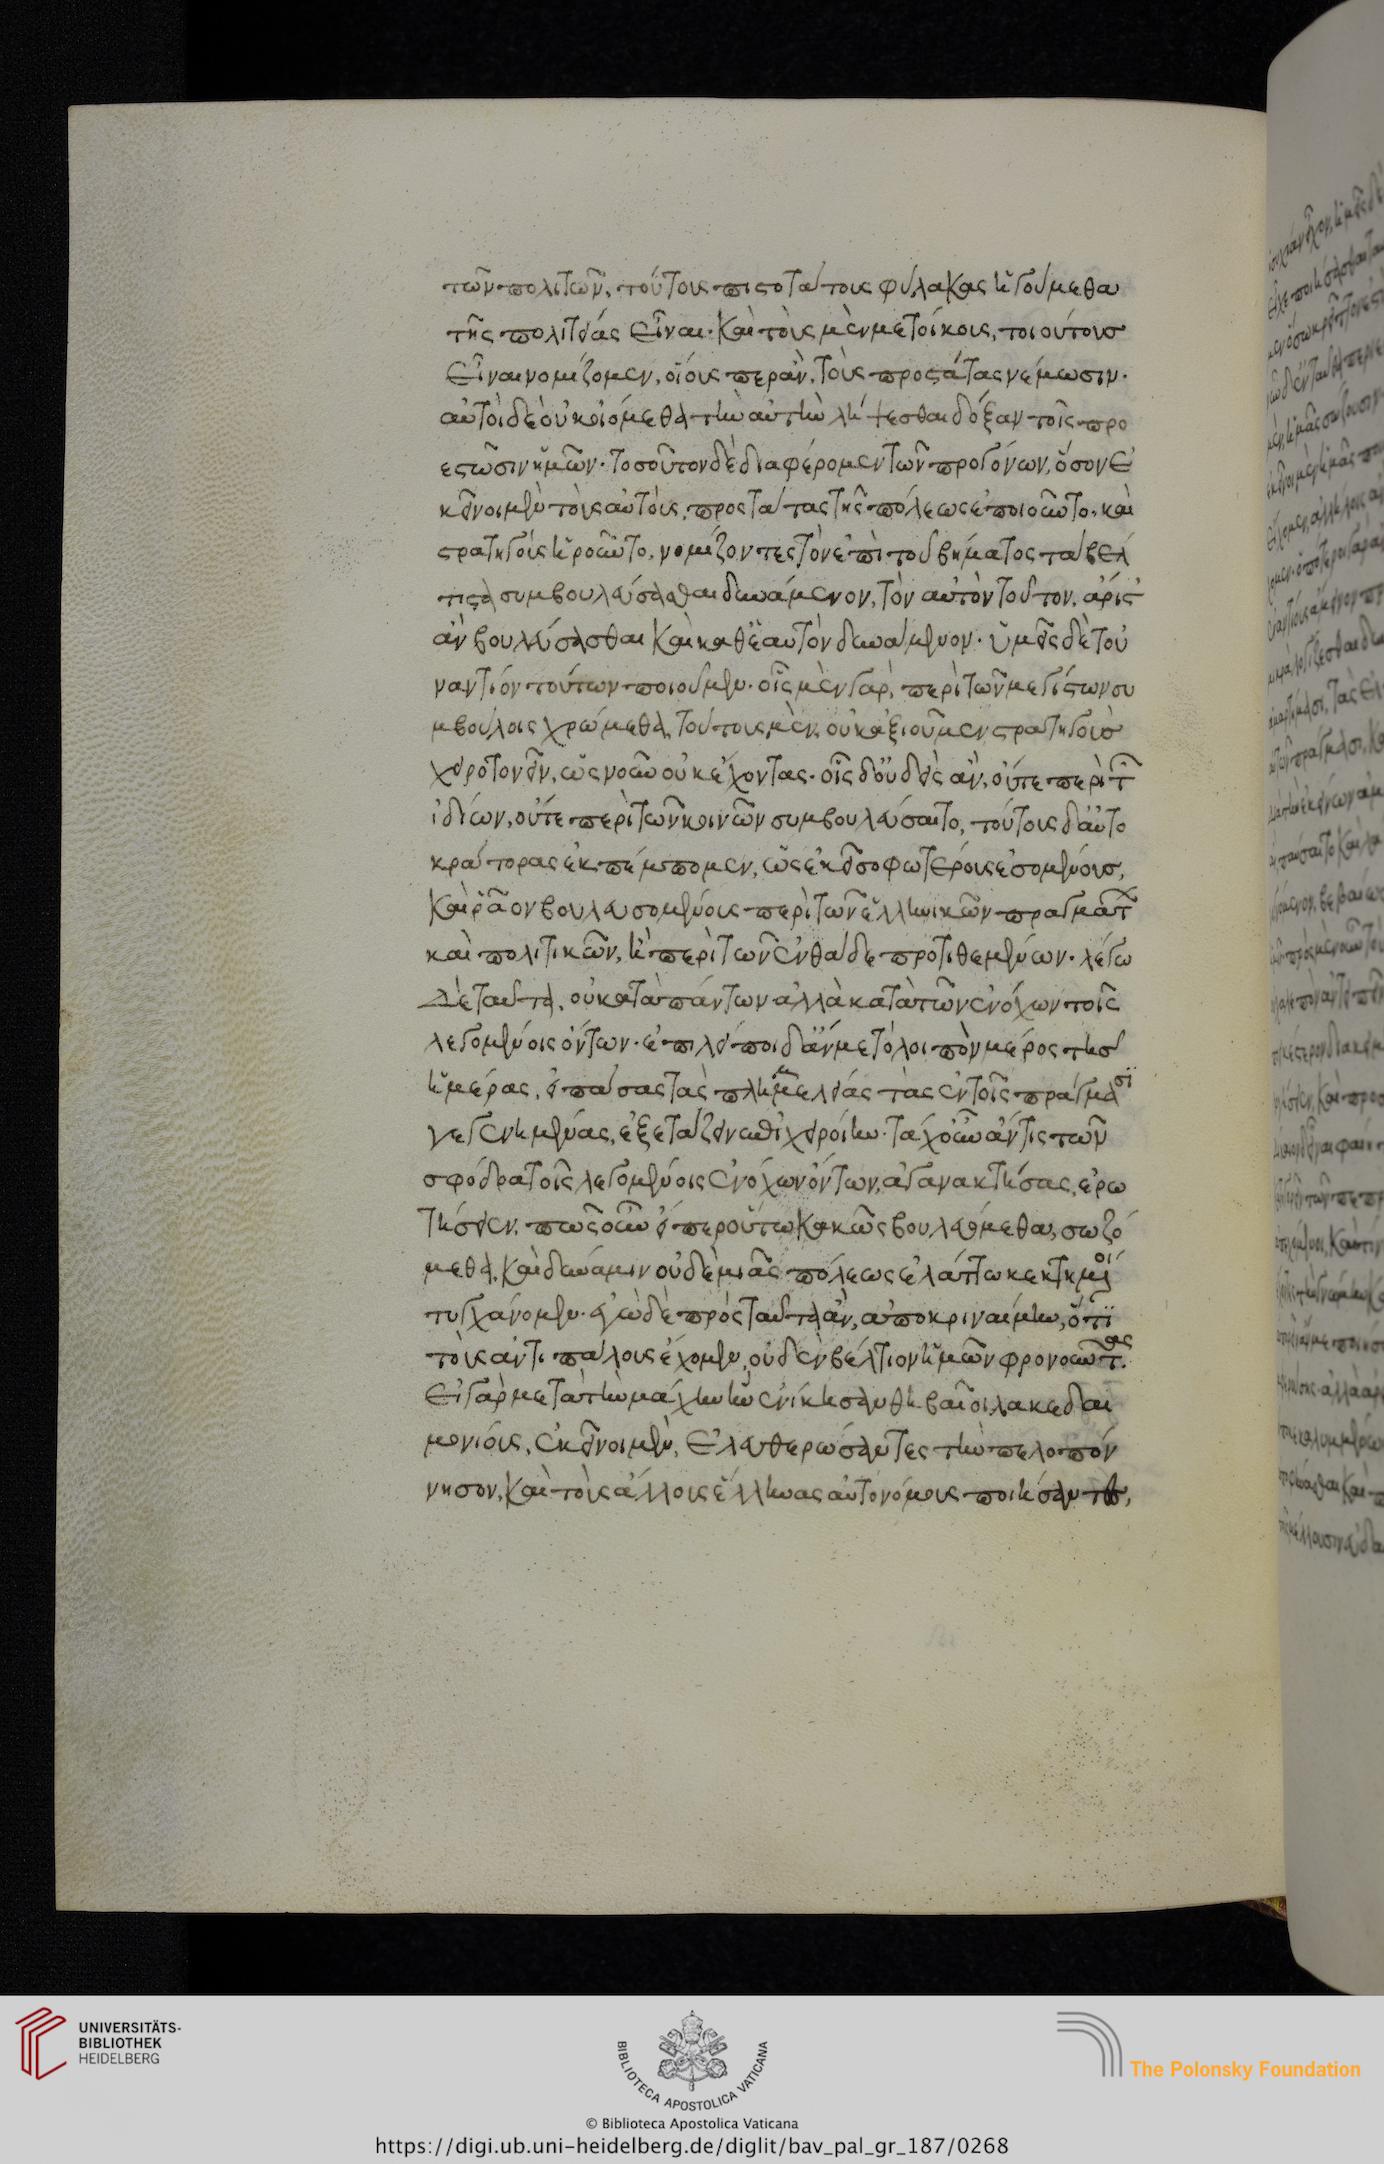 τῶν πολιτῶν, τούτους πιστοτάτους φύλακας ἡγούμεθα
τῆς πολιτείας εἶναι· καὶ τοὺς μὲν μετοίκους, τοιούτους
εἶναι νομίζομεν, οἵους περ ἂν, τοὺς προστάτας νέμωσιν·
αὐτοὶ δὲ οὐκ οἰόμεθα τὴν αὐτὴν λήψεσθαι δόξαν τοῖς προ
εστῶσιν ἡμῶν· τοσοῦτον δὲ διαφέρομεν τῶν προγόνων, ὅσον ἐ
κεῖνοι μὲν τοὺς αὐτοὺς, προστάτας τῆς πόλεως ἐποιοῦντο, καὶ
στρατηγοὺς ἡροῦντο, νομίζοντες τὸν ἐπὶ τοῦ βήματος τὰ βέλ
τιστα συμβουλεύσασθαι δυνάμενον, τὸν αὐτὸν τοῦτον, ἄριστ᾽
ἂν βουλεύσασθαι καὶ καθ᾽ ἑαυτὸν δυνάμενον· ὑμεῖς δὲ τοὐ
ναντίον τούτων ποιοῦμεν· οἷς μὲν γὰρ, περὶ τῶν μεγίστων συ
μβούλοις χρώμεθα, τούτους μὲν, οὐκ ἀξιοῦμεν στρατηγοὺς
χειροτονεῖν, ὡς νοῦν οὐκ ἔχοντας· οἷς δ᾽ οὐδεὶς ἂν, οὔτε περὶ τ̃
ἰδίων, οὔτε περὶ τῶν κοινῶν συμβουλεύσαιτο, τούτους δ᾽ αὐτο
κράτορας ἐκπέμπομεν, ὡς ἐκεῖ σοφωτέρους ἐσομένους,
καὶ ῥᾶον βουλευσομένους περὶ τῶν ἑλληνικῶν πραγμάτ
καὶ πολιτικῶν, ἢ περὶ τῶν ἐνθάδε προτιθεμένων· λέγω
δὲ ταῦτα, οὐ κατὰ πάντων ἀλλὰ κατὰ τῶν ἐνόχων τοῖς
λεγομένοις ὄντων· ἐπιλείποι δ᾽ ἄν με τὸ λοιπὸν μέρος τῆς
ἡμέρας, εἰ πάσας τὰς πλημμελείας τὰς ἐν τοῖς πράγμασι
γεγενημένας, ἐξετάζειν ἐπιχειροίην· τάχ᾽ οὖν ἄν τις τῶν
σφόδρα τοῖς λεγομένοις ἐνόχων ὄντων, ἀγανακτήσας, ἐρω
τήσειεν, πῶς οὖν εἴπερ οὕτω κακῶς βουλευόμεθα, σωζό
μεθα, καὶ δύναμιν οὐδεμιᾶς πόλεως ἐλάττω κεκτημένοι
τυγχάνομεν· ἐγὼ δὲ πρὸς ταῦτα ἂν, ἀποκριναίμην, ὅτι
τοὺς ἀντιπάλους ἔχομεν, οὐδὲν βέλτιον ἡμῶν φρονοῦντας.
εἰ γὰρ μετὰ τὴν μάχην ἣν ἐνίκησαν θηβαῖοι λακεδαι
μονίους, ἐκεῖνοι μὲν, ἐλευθερώσαντες τὴν πελοπόν
νησον, καὶ τοὺς ἄλλους ἕλληνας αὐτονόμους ποιήσαντες,
UNIVERSITÄTS-
BIBLIOTHEK
HEIDELBERG
BIBLIOTECA APOSTOLICA VATICANA
The Polonsky Foundation
© Biblioteca Apostolica Vaticana
https://digi.ub.uni-heidelberg.de/diglit/bav_pal_gr_187/0268